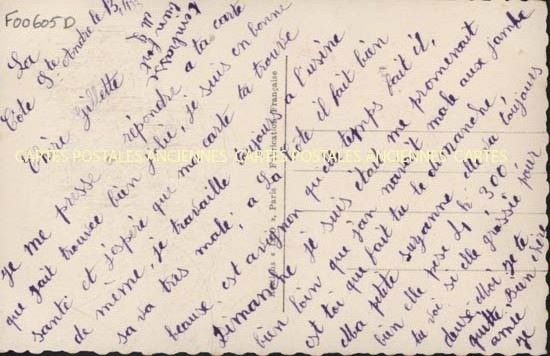 F00605D
La
Côte St André le 13/
Chère Gillette
je me presse répondre a ta carte
que jait trouvée bien jolie, je suis en bonne
santé et j'espère que ma carte ta trouve
de même, je travaille toujours a l'usine
sa va très mal, a La Côte il fait bien
beause est a quel temps fait il,
Dimanche je suis était me promenait
bien loin que j'an navait male aux jambe
est toi que fait tu le dimanche
ma petite suzanne elle va toujours
bien elle pèse 4 k 300
tu voi si elle grossie pour
je te
quitte Bien chère
amie
CARTES POSTALES ANCIENNES CARTES POSTALES ANCIENNES CARTES
Paris Fabrication Française